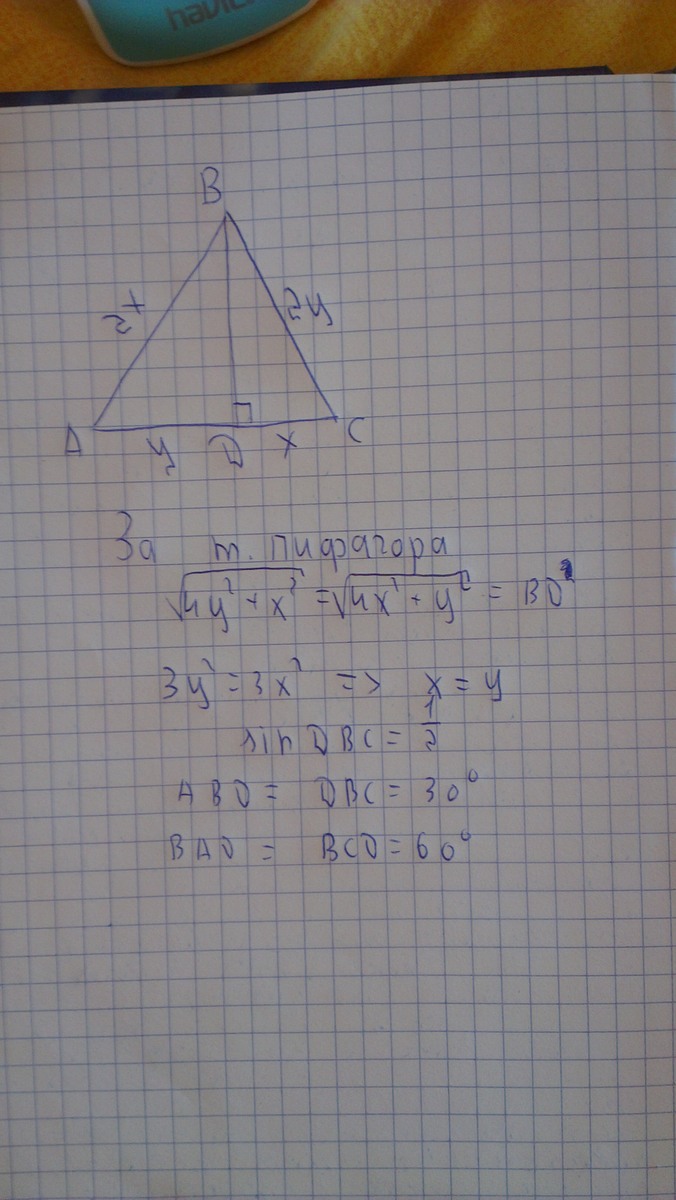 havit
B
2x
2y
A y D x C
За т. Пифагора
√4y² + x² = √4x² + y² = BD
3y² = 3x² => x = y
sin DBC = 1/2
ABD = DBC = 30°
BAD = BCD = 60°